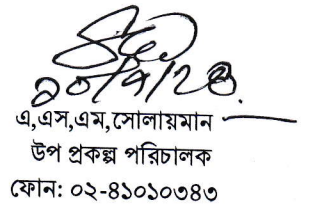 ২০/৭/২৪
এ,এস,এম,সোলায়মান
উপ প্রকল্প পরিচালক
ফোন: ০২-৪১০১০৩৪৩